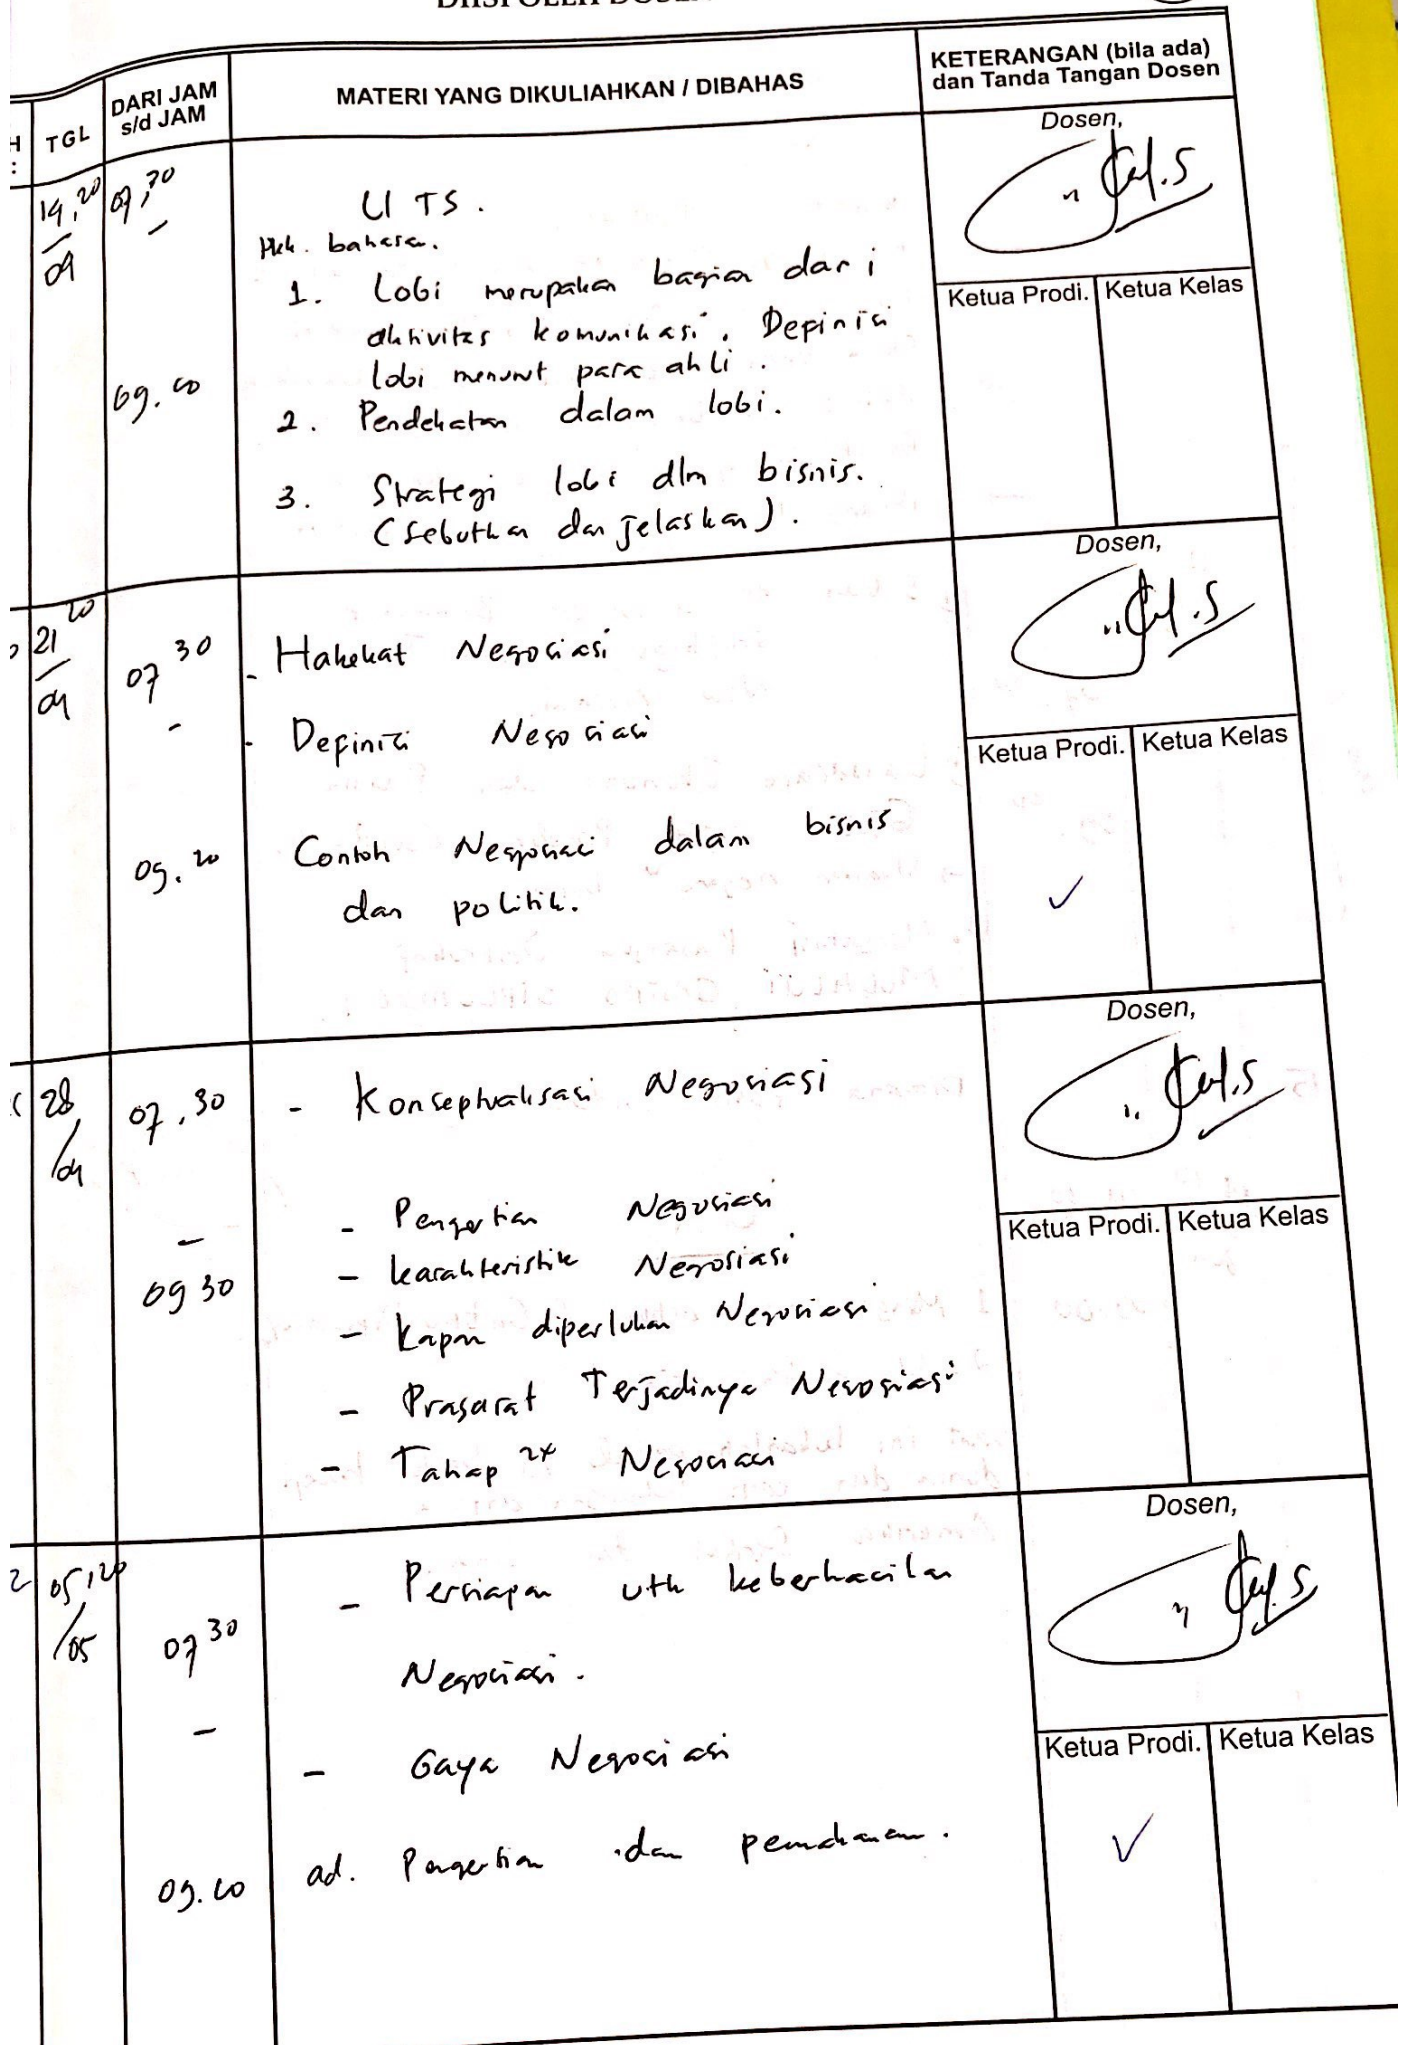 DIISI OLEH DOSEN
TGL
DARI JAM
s/d JAM
MATERI YANG DIKULIAHKAN / DIBAHAS
KETERANGAN (bila ada)
dan Tanda Tangan Dosen
14, 20
/
04
07,30
-
09.
UTS.
bahasan.
1. Lobi merupakan bagian dari
aktivitas komunikasi. Depinisi
lobi menurut para ahli.
2. Pendekatan dalam lobi.
3. Strategi lobi dlm bisnis.
(Sebutkan dan jelaskan).
Dosen,
Ketua Prodi. Ketua Kelas
21 20
/
04
07 30
-
09.20
- Hakekat Negosiasi
- Depinisi Negosiasi
Contoh Negosiasi dalam bisnis
dan politik.
Dosen,
Ketua Prodi. Ketua Kelas
✓
28
/04
07.30
-
09 30
- Konseptualisasi Negosiasi
- Pengertian Negosiasi
- karakteristik Negosiasi
- Kapan diperlukan Negosiasi
- Prasarat Terjadinya Negosiasi
- Tahap 2x Negosiasi
Dosen,
Ketua Prodi. Ketua Kelas
05, 20
/05
07 30
-
09.
- Persiapan utk keberhasilan
Negosiasi.
- Gaya Negosiasi
ad. Pengertian dan pemahaman.
Dosen,
Ketua Prodi. Ketua Kelas
✓